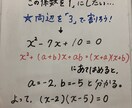 この係数を1にしたい…
★両辺を「3」で割ろう！
x²-7x+10=0
x²+(a+b)x+ab=(x+a)(x+b)
にあてはめると、
a=-2, b=-5と分かる。
よって、(x-2)(x-5)=0